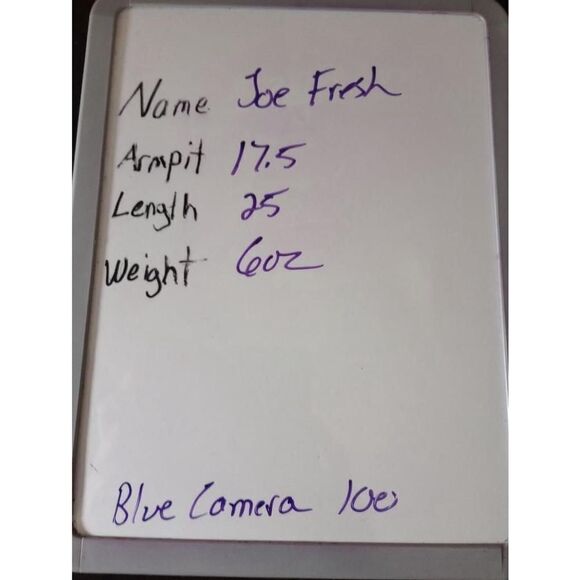 Name Joe Fresh
Armpit 17.5
Length 25
Weight 6oz
Blue Camera 100